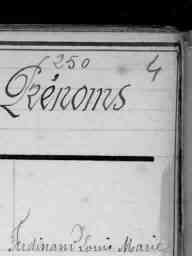 250 4
Prénoms
Ferdinand Louis Marie